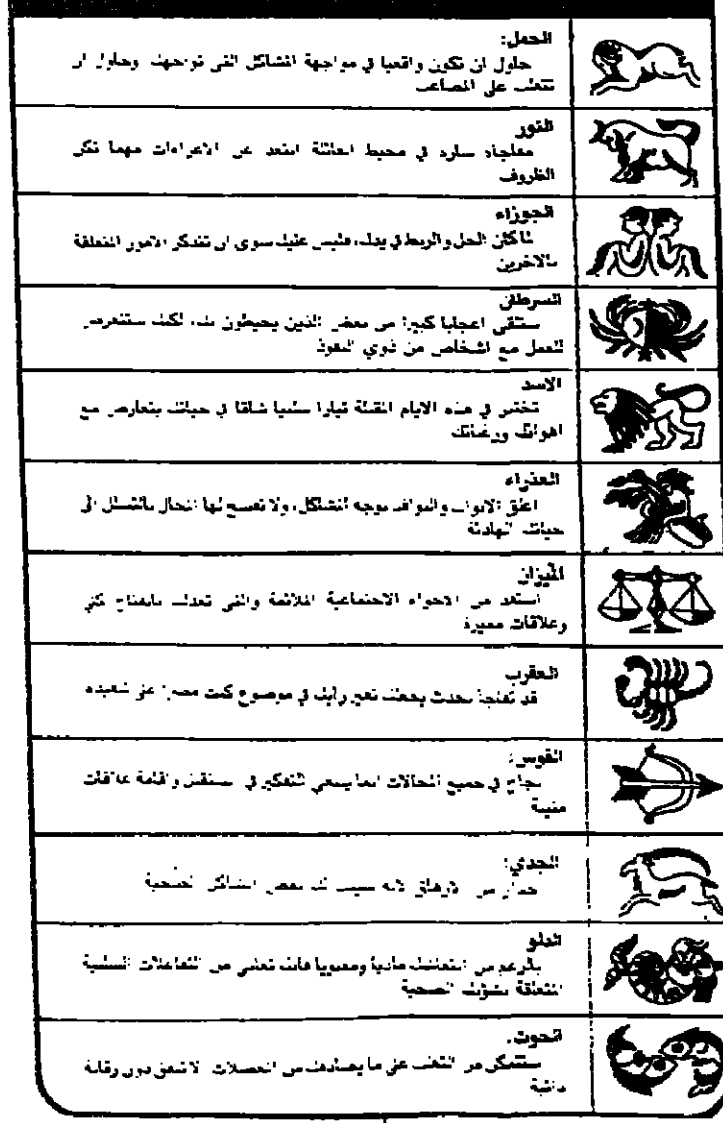 الحمل:
حاول ان تكون واقعيا في مواجهة المشاكل التي تواجهك وحاول ان
تتغلب على المصاعب
الثور
مفاجأة سارة في محيط العائلة ابتعد عن الاغراءات مهما تكن
الظروف
الجوزاء
لما كان الحل والربط في يدك، فليس عليك سوى ان تتذكر الامور المتعلقة
بالاخرين
السرطان
ستلقى اعجابا كبيرا من بعض الذين يحيطون بك، لكنك ستتعرض
للعمل مع اشخاص من ذوي النفوذ
الاسد
تختبر في هذه الايام المقبلة تيارا سلبيا شاقا في حياتك يتعارض مع
اهوائك ورغباتك
العذراء
اغلق الابواب والنوافذ بوجه المشاكل، ولا تفسح لها المجال بالتسلل الى
حياتك الهادئة
الميزان
استفد من الاجواء الاجتماعية الملائمة والتي تعدك بانفتاح كلي
وعلاقات مميزة
العقرب
قد تفاجأ بحدث يجعلك تغير رأيك في موضوع كنت مصرا على تنفيذه
القوس:
نجاح في جميع المجالات انما ينبغي التفكير في مستقبلك واقامة علاقات
متينة
الجدي:
حذار من الارهاق لانه سيسبب لك بعض المشاكل الصحية
الدلو
بالرغم من انتعاشك ماديا ومعنويا فانك تعاني من التفاعلات السلبية
المتعلقة بشؤونك الصحية
الحوت.
ستتمكن من التغلب على ما يصادفك من المعضلات لا تنفق بدون رقابة
ذاتية